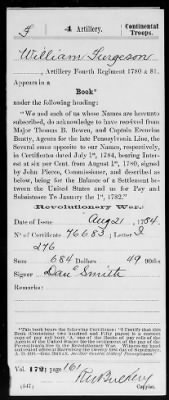 F | 4 Artillery. | Continental Troops.
William Furgeson
, Artillery Fourth Regiment 1780 & 81.
Appears in a
Book*
under the following heading:
"We and each of us whose Names are hereunto
subscribed, do acknowledge to have received from
Major Thomas B. Bowen, and Captain Everrius
Beatty, Agents for the late Pennsylvania Line, the
Several sums opposite to our Names, respectively,
in Certificates dated July 1st, 1784, bearing Inter-
est at six per Cent. from August 1st, 1780, signed
by John Pierce, Commissioner, and described as
below, being for the Balance of a Settlement be-
tween the United States and us for Pay and
Subsistance To January the 1st, 1782."
Revolutionary War.
Date of Issue Aug 21, 1784.
No of Certificate 76683; Letter
276
Sum 684 Dollars 49 90ths
Signer Danl Smith
Remarks:
Vol. 179; page 161
(547) Copyist.